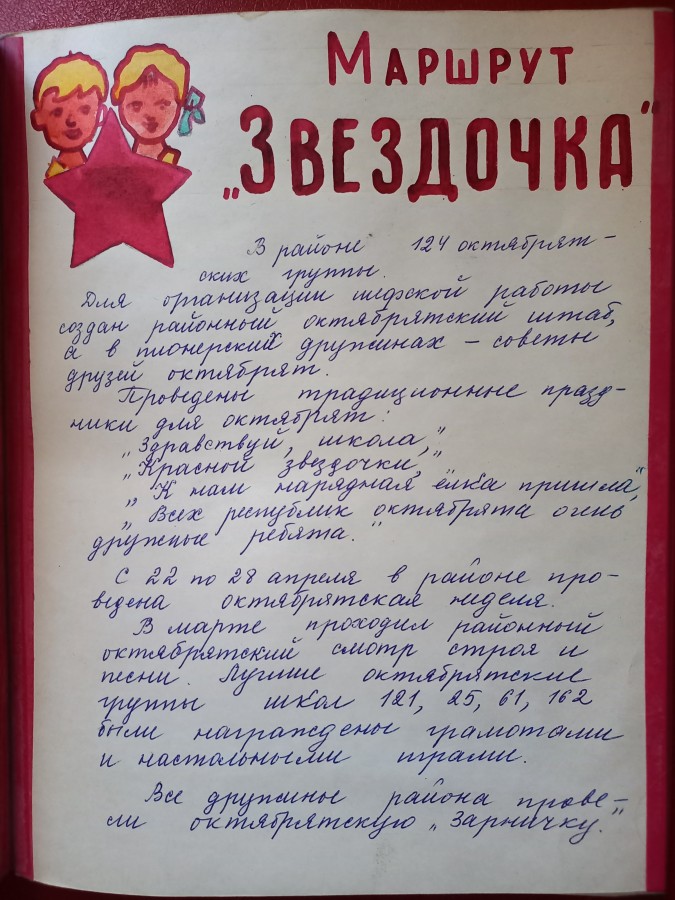 Маршрут
„Звездочка"
В районе 124 октябрят-
ских группы.
Для организации шефской работы
создан районный октябрятский штаб,
а в пионерских дружинах – советы
друзей октябрят.
Проведены традиционные празд-
ники для октябрят:
„Здравствуй, школа",
„Красной звездочки",
„К нам нарядная ёлка пришла",
„Всех республик октябрята очень
дружные ребята."
С 22 по 28 апреля в районе про-
ведена октябрятская неделя.
В марте проходил районный
октябрятский смотр строя и
песни. Лучшие октябрятские
группы школ 121, 25, 61, 162
были награждены грамотами
и настольными играми.
Все дружины района прове-
ли октябрятскую „Зарничку."